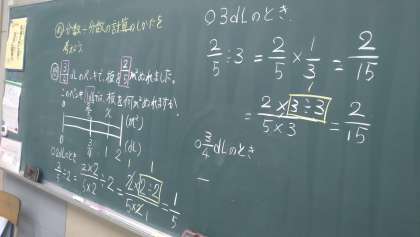 め 分数÷分数の計算のしかたを
考えよう
問 3/4 dLのペンキで、板を 2/5 m²ぬれました。
このペンキ1dLでは、板を何m²ぬれますか。
0 2/5 x (m²)
0 3/4 1 2 (dL)
○2dLのとき
2/5÷2=2×2/5×2÷2=2×2÷2/5×2=1/5
○3dLのとき
2/5÷3=2/5×1/3=2/15
=2×3÷3/5×3=2/15
○3/4dLのとき